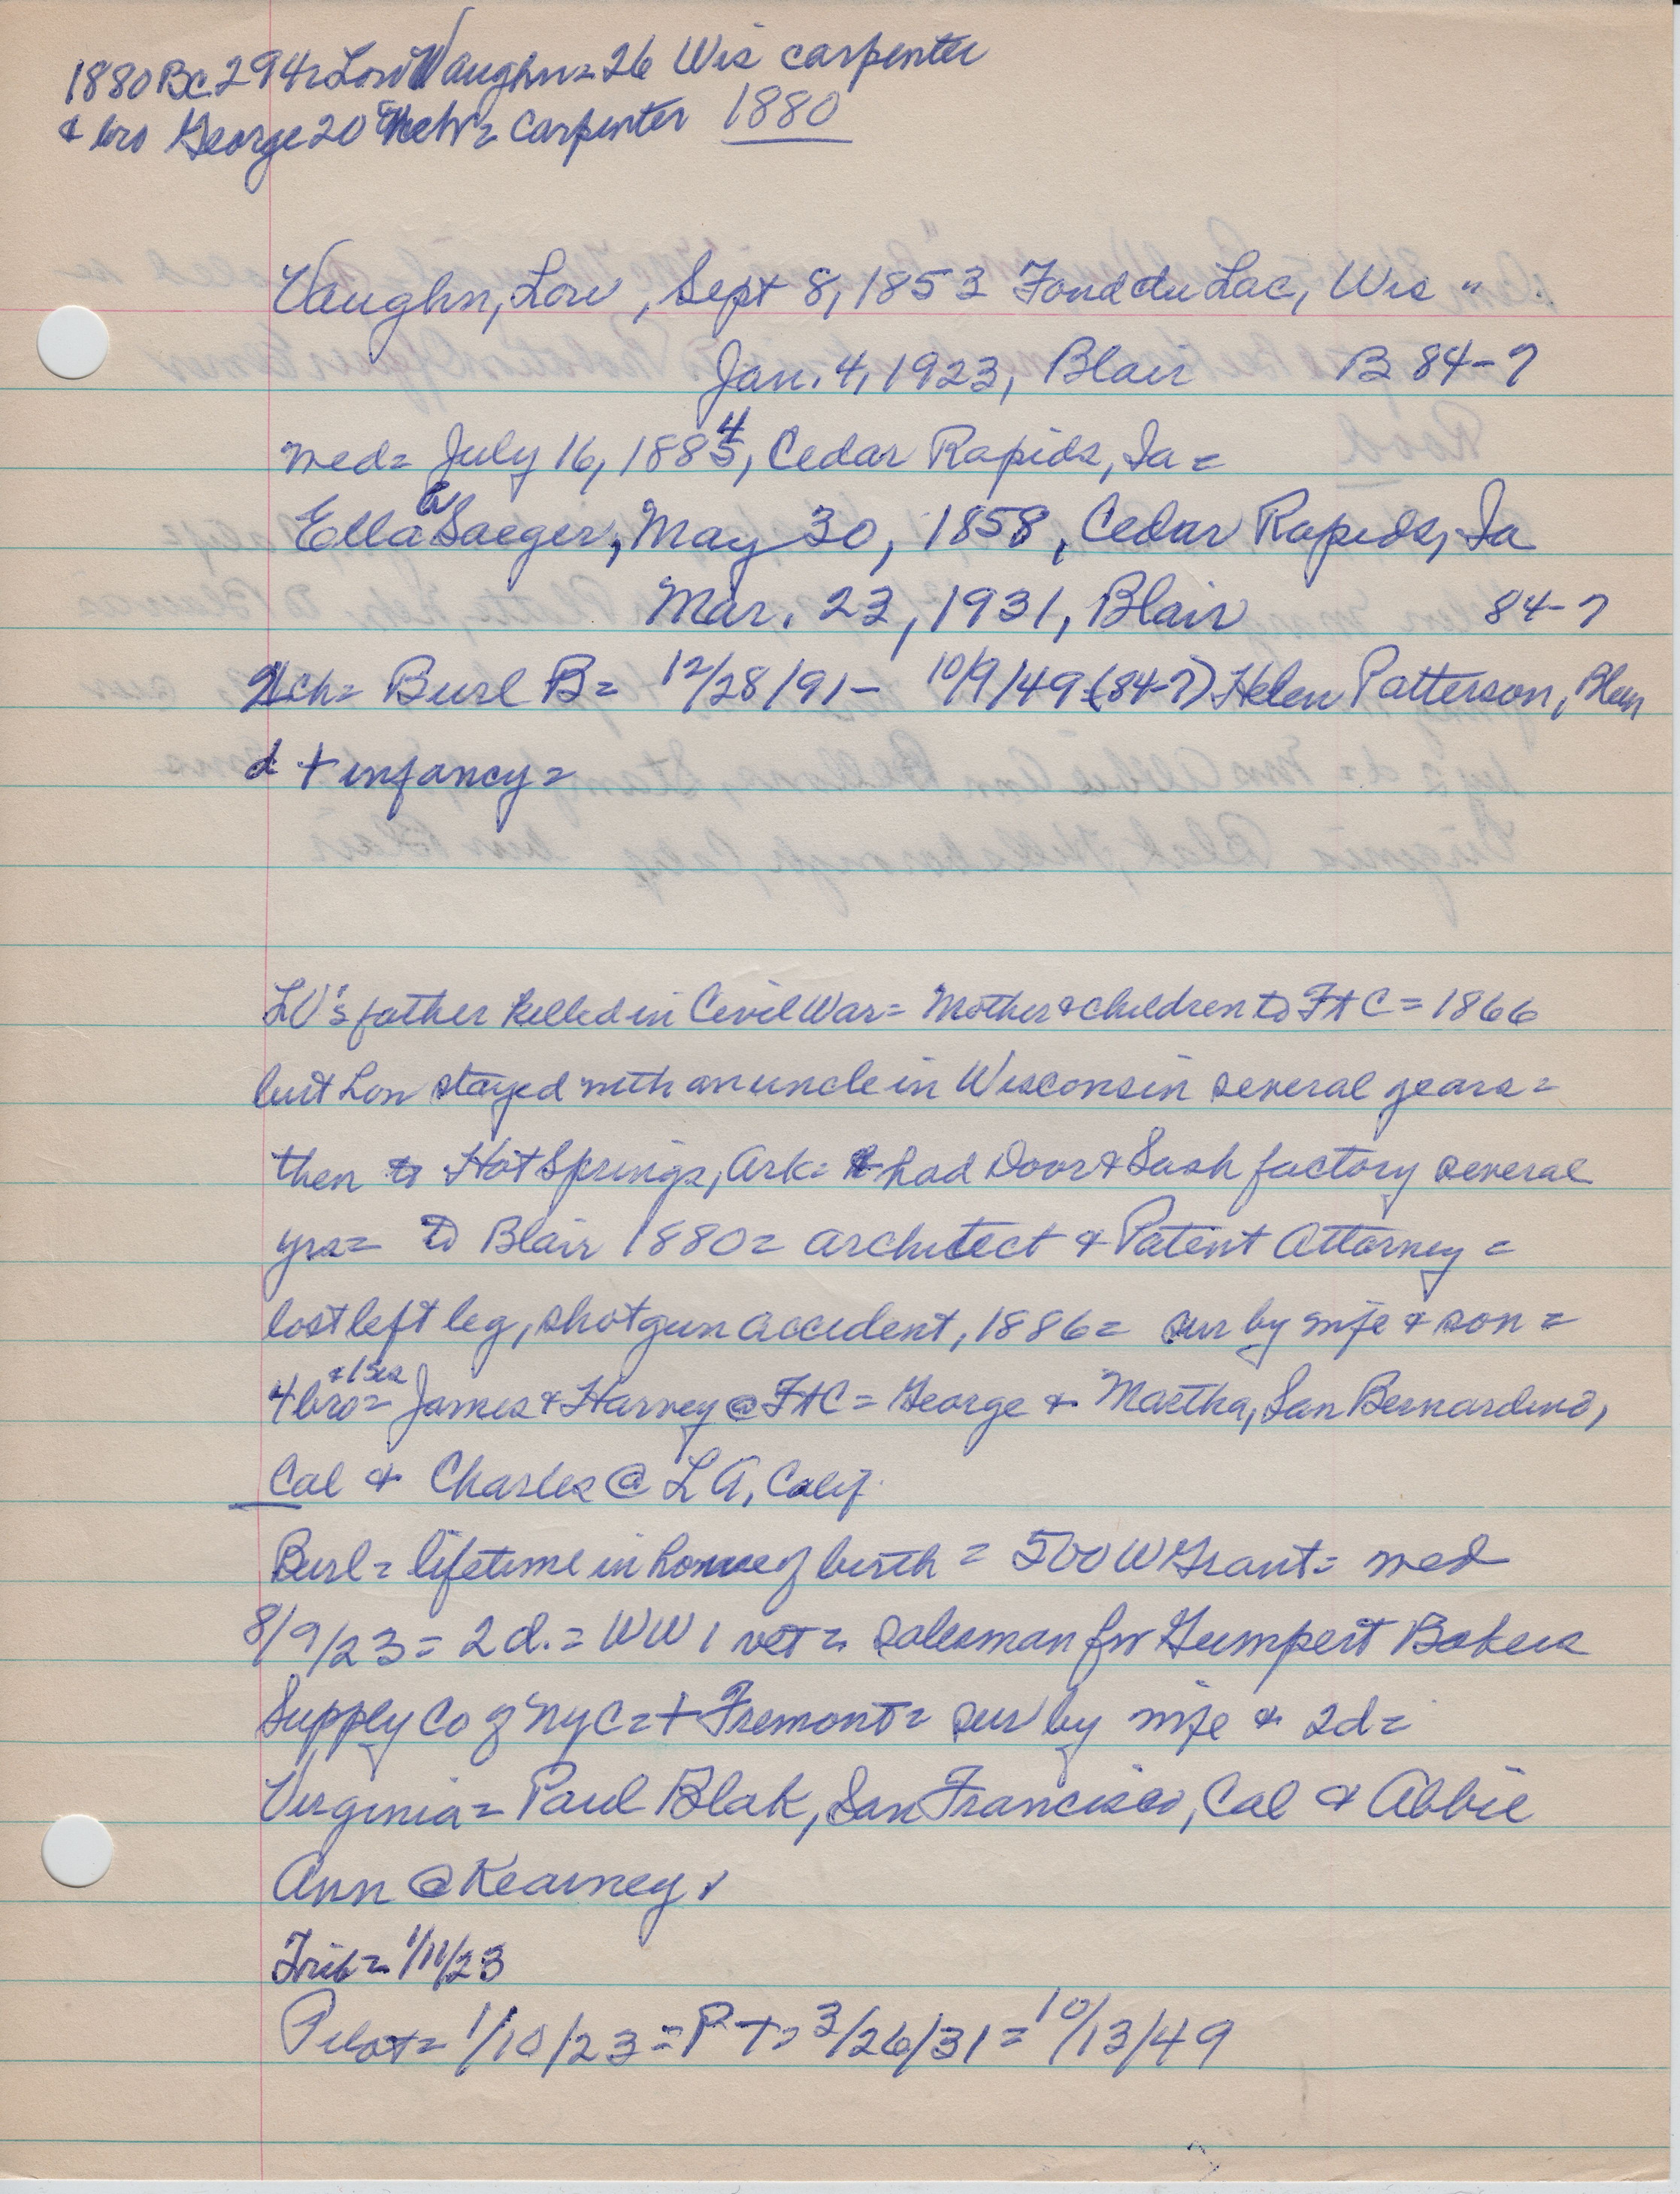 1880 BC 294= Lon Vaughn= 26 Wis carpenter
& bro George 20 = carpenter 1880
Vaughn, Lon, Sept 8, 1853 Fond du Lac, Wis "
Jan. 4, 1923, Blair B 84-7
med= July 16, 1884, Cedar Rapids, Ia=
Ella W Saeger, May 30, 1858, Cedar Rapids, Ia
Mar. 23, 1931, Blair 84-7
ch= Burl B= 12/28/91- 10/9/49 (84-7) Helen Patterson,
d + infancy=
LV's father killed in Civil War= Mother & children to Ft C= 1866
but Lon stayed with an uncle in Wisconsin several years=
then to Hot Springs, Ark= had Door & Sash factory several
yrs= to Blair 1880= architect & Patent Attorney=
lost left leg, shotgun accident, 1886= sur by wife & son=
4 bro & 1 sis= James & Harvey @ Ft C= George & Martha, San Bernardino,
Cal & Charles @ L A, Calif.
Burl= lifetime in home of birth= 500 W Grant= med
8/9/23= 2 d.= WW 1 vet= salesman for Gumpert Bakers
Supply Co of NYC= + Fremont= sur by wife & 2d=
Virginia= Paul Blak, San Francisco, Cal & Abbie
Ann @ Kearney.
Trib= 1/11/23
Pilot= 1/10/23= P T= 3/26/31= 10/13/49